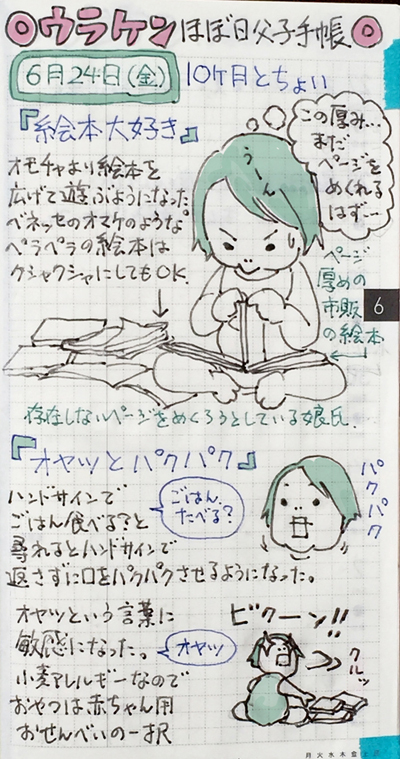 ◎ウラケン ほぼ日父子手帳◎
6月24日(金) 10ヶ月とちょい
『絵本大好き』
オモチャより絵本を
広げて遊ぶようになった
ベネッセのオマケのような
ペラペラの絵本は
クシャクシャにしてもOK.
うーん
この厚み…
まだ
ページを
めくれる
はず…
ページ
厚めの
市販
の絵本
6
存在しないページをめくろうとしている娘氏.
『オヤツとパクパク』
ハンドサインで
ごはん食べる?と
尋れるとハンドサインで
返さずに口をパクパクさせるようになった。
ごはん
たべる?
パクパク
オヤツという言葉に
敏感になった。
小麦アレルギーなので
おやつは赤ちゃん用
おせんべいの一択
オヤツ
ビクーン!!
クルッ
月火水木金土日